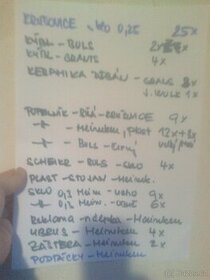 KRUŠOVICE sklo 0,25 25x
KÝBL - BULS 2x
KÝBL - GRANTS 4x
KERAMIKA DŽBÁN - GRANTS 8x
J. WALK 1x
POPELNÍK - KRUŠOVICE 9x
-//- - Heineken, plast 12x+8x
-//- - Buls - černý
SCHEIKR - BULS - SKLO 4x
PLAST - STOJAN - Heinek.
SKLO 0,3 Hein. - ucho 9x
-//- 0,5 Hein. - ucho 6x
Reklama - Heineken
UBRUS - Heineken 4x
ZÁSTĚRA - Heineken 2x
PODTÁCKY - Heineken